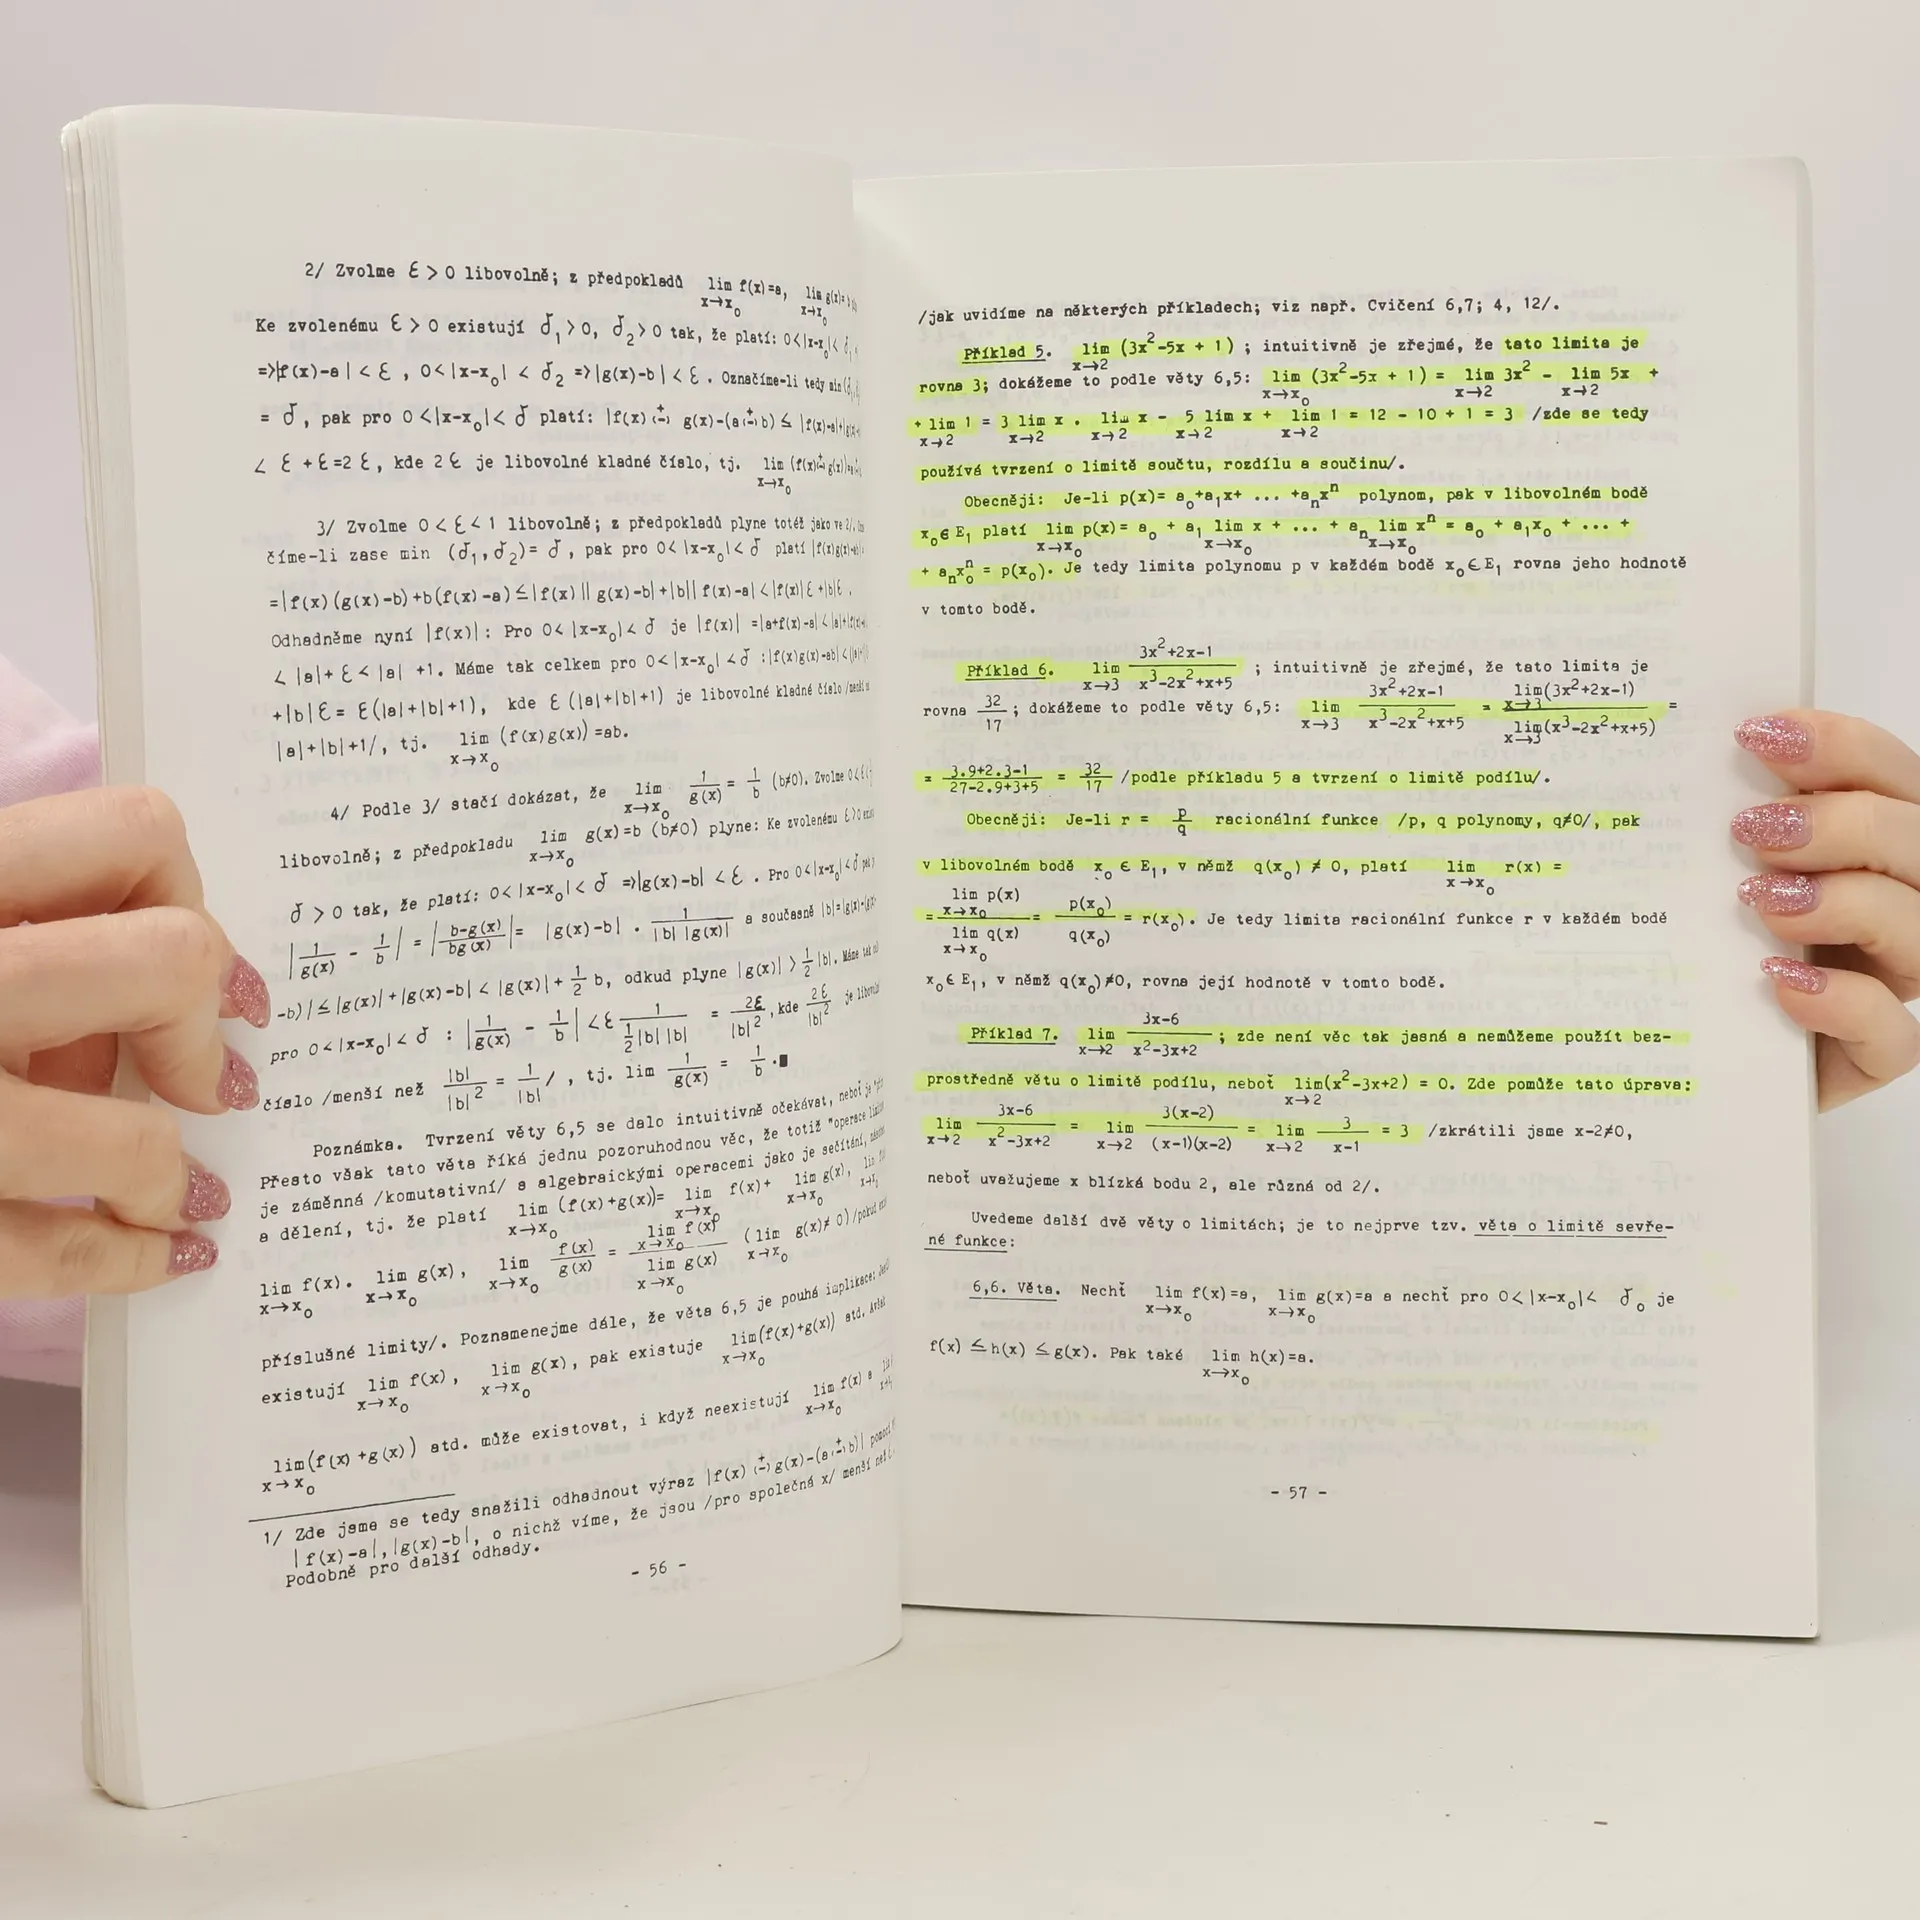 2/ Zvolme ℰ > 0 libovolně; z předpokladů lim f(x)=a, lim g(x)=
x→x₀ x→x₀
Ke zvolenému ℰ > 0 existují δ₁ > 0, δ₂ > 0 tak, že platí: 0<|x-x₀|<
=>|f(x)-a| < ℰ , 0<|x-x₀| < δ₂ =>|g(x)-b| < ℰ . Označíme-li tedy min
= δ, pak pro 0<|x-x₀|< δ platí: |f(x) ± g(x)-(a ± b) ≤ |f(x)-a|+
< ℰ + ℰ = 2 ℰ, kde 2 ℰ je libovolné kladné číslo, tj. lim (f(x) ± g(x))
x→x₀
3/ Zvolme 0 < ℰ < 1 libovolně; z předpokladů plyne totéž jako ve 2/.
číme-li zase min (δ₁,δ₂)= δ, pak pro 0< |x-x₀|< δ platí
=|f(x)(g(x)-b)+b(f(x)-a) ≤ |f(x)||g(x)-b|+|b||f(x)-a| < |f(x)|ℰ+|b|ℰ.
Odhadněme nyní |f(x)|: Pro 0< |x-x₀|< δ je |f(x)| =|a+f(x)-a| <
< |a|+ ℰ < |a| +1. Máme tak celkem pro 0<|x-x₀| < δ :|f(x)g(x)-ab|<
+|b|ℰ = ℰ(|a|+|b|+1), kde ℰ (|a|+|b|+1) je libovolné kladné číslo /menší
|a|+|b|+1/, tj. lim (f(x)g(x)) =ab.
x→x₀
4/ Podle 3/ stačí dokázat, že lim 1/g(x) = 1/b (b≠0). Zvolme
x→x₀
libovolně; z předpokladu lim g(x)=b (b≠0) plyne: Ke zvolenému ℰ>0
x→x₀
δ > 0 tak, že platí: 0< |x-x₀|< δ =>|g(x)-b| < ℰ . Pro 0<|x-x₀|< δ
|1/g(x) - 1/b| = |b-g(x)/bg(x)| = |g(x)-b| . 1/|b| |g(x)| a současně |b|=
-b)| ≤ |g(x)|+|g(x)-b| < |g(x)|+ 1/2 b, odkud plyne |g(x)| > 1/2 |b|. Máme
pro 0<|x-x₀|< δ : |1/g(x) - 1/b| < ℰ 1/1/2|b| |b| = 2ℰ/|b|², kde 2ℰ/|b|² je
číslo /menší než |b|/|b|² = 1/|b| / , tj. lim 1/g(x) = 1/b .∎
Poznámka. Tvrzení věty 6,5 se dalo intuitivně očekávat, neboť je
Přesto však tato věta říká jednu pozoruhodnou věc, že totiž "operace
je záměnná /komutativní/ s algebraickými operacemi jako je sečítání,
a dělení, tj. že platí lim (f(x)+g(x))= lim f(x)+ lim g(x),
x→x₀ x→x₀ x→x₀
lim f(x). lim g(x), lim f(x)/g(x) = lim f(x)/lim g(x) (lim g(x)≠ 0)/pokud
x→x₀ x→x₀ x→x₀ x→x₀ x→x₀ x→x₀
příslušné limity/. Poznamenejme dále, že věta 6,5 je pouhá implikace:
existují lim f(x), lim g(x), pak existuje lim(f(x)+g(x)) atd. Avšak
x→x₀ x→x₀ x→x₀
lim(f(x)+g(x)) atd. může existovat, i když neexistují lim f(x) a
x→x₀ x→x₀
1/ Zde jsme se tedy snažili odhadnout výraz |f(x) ± g(x)-(a ± b)| pomocí
|f(x)-a|,|g(x)-b|, o nichž víme, že jsou /pro společná x/ menší než
Podobně pro další odhady.
- 56 -
/jak uvidíme na některých příkladech; viz např. Cvičení 6,7; 4, 12/.
Příklad 5. lim (3x²-5x + 1) ; intuitivně je zřejmé, že tato limita je
x→2
rovna 3; dokážeme to podle věty 6,5: lim (3x²-5x + 1) = lim 3x² - lim 5x +
x→x₀ x→2 x→2
+ lim 1 = 3 lim x . lim x - 5 lim x + lim 1 = 12 - 10 + 1 = 3 /zde se tedy
x→2 x→2 x→2 x→2 x→2
používá tvrzení o limitě součtu, rozdílu a součinu/.
Obecněji: Je-li p(x)= a₀+a₁x+ ... +aₙxⁿ polynom, pak v libovolném bodě
x₀∈ E₁ platí lim p(x)= a₀ + a₁ lim x + ... + aₙ lim xⁿ = a₀ + a₁x₀ + ... +
x→x₀ x→x₀ x→x₀
+ aₙx₀ⁿ = p(x₀). Je tedy limita polynomu p v každém bodě x₀∈E₁ rovna jeho hodnotě
v tomto bodě.
Příklad 6. lim 3x²+2x-1/x³-2x²+x+5 ; intuitivně je zřejmé, že tato limita je
x→3
rovna 32/17; dokážeme to podle věty 6,5: lim 3x²+2x-1/x³-2x²+x+5 = lim(3x²+2x-1)/lim(x³-2x²+x+5) =
x→3 x→3 x→3
= 3.9+2.3-1/27-2.9+3+5 = 32/17 /podle příkladu 5 a tvrzení o limitě podílu/.
Obecněji: Je-li r = p/q racionální funkce /p, q polynomy, q≠0/, pak
v libovolném bodě x₀ ∈ E₁, v němž q(x₀) ≠ 0, platí lim r(x) =
x→x₀
= lim p(x)/lim q(x) = p(x₀)/q(x₀) = r(x₀). Je tedy limita racionální funkce r v každém bodě
x→x₀ x→x₀
x₀∈ E₁, v němž q(x₀)≠0, rovna její hodnotě v tomto bodě.
Příklad 7. lim 3x-6/x²-3x+2 ; zde není věc tak jasná a nemůžeme použít bez-
x→2
prostředně větu o limitě podílu, neboť lim(x²-3x+2) = 0. Zde pomůže tato úprava:
x→2
lim 3x-6/x²-3x+2 = lim 3(x-2)/(x-1)(x-2) = lim 3/x-1 = 3 /zkrátili jsme x-2≠0,
x→2 x→2 x→2
neboť uvažujeme x blízká bodu 2, ale různá od 2/.
Uvedeme další dvě věty o limitách; je to nejprve tzv. věta o limitě sevře-
né funkce:
6,6. Věta. Nechť lim f(x)=a, lim g(x)=a a nechť pro 0<|x-x₀|< δ₀ je
x→x₀ x→x₀
f(x) ≤ h(x) ≤ g(x). Pak také lim h(x)=a.
x→x₀
- 57 -